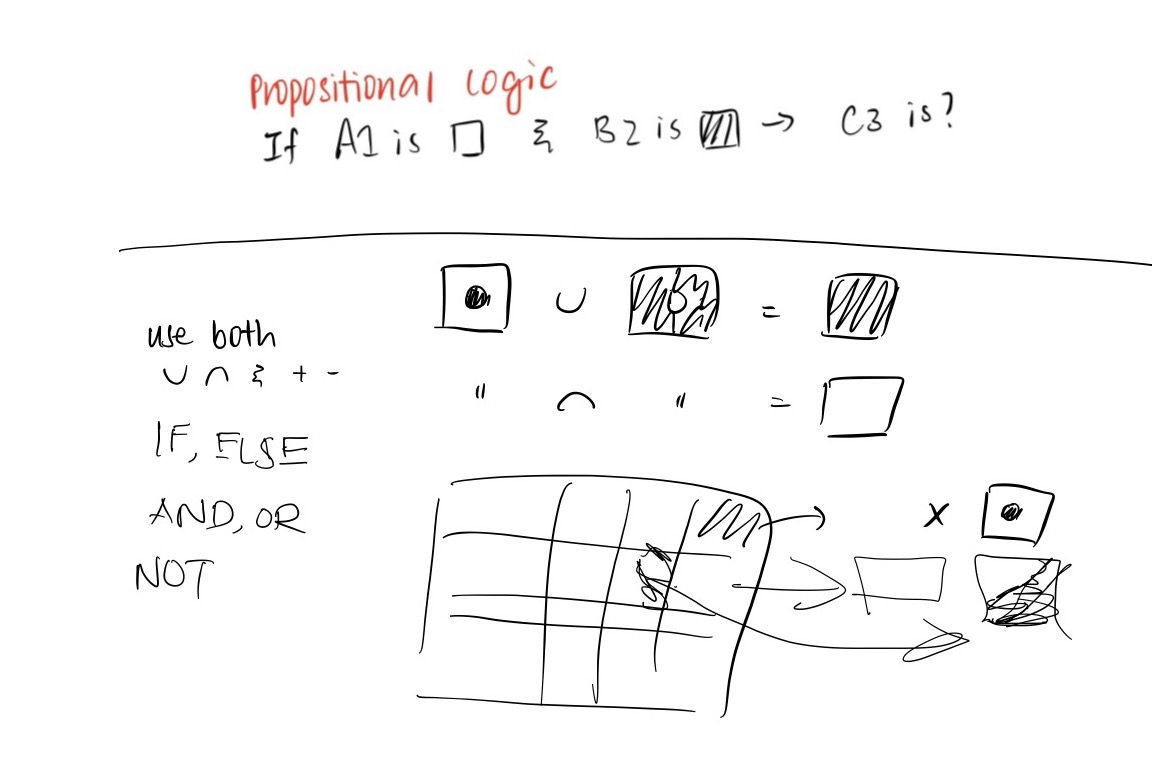 Propositional Logic
If A1 is □ & B2 is ▨ → C3 is?
∪ =
use both
∪ ∩ & + -
" ∩ " =
IF, ELSE
AND, OR
x
NOT